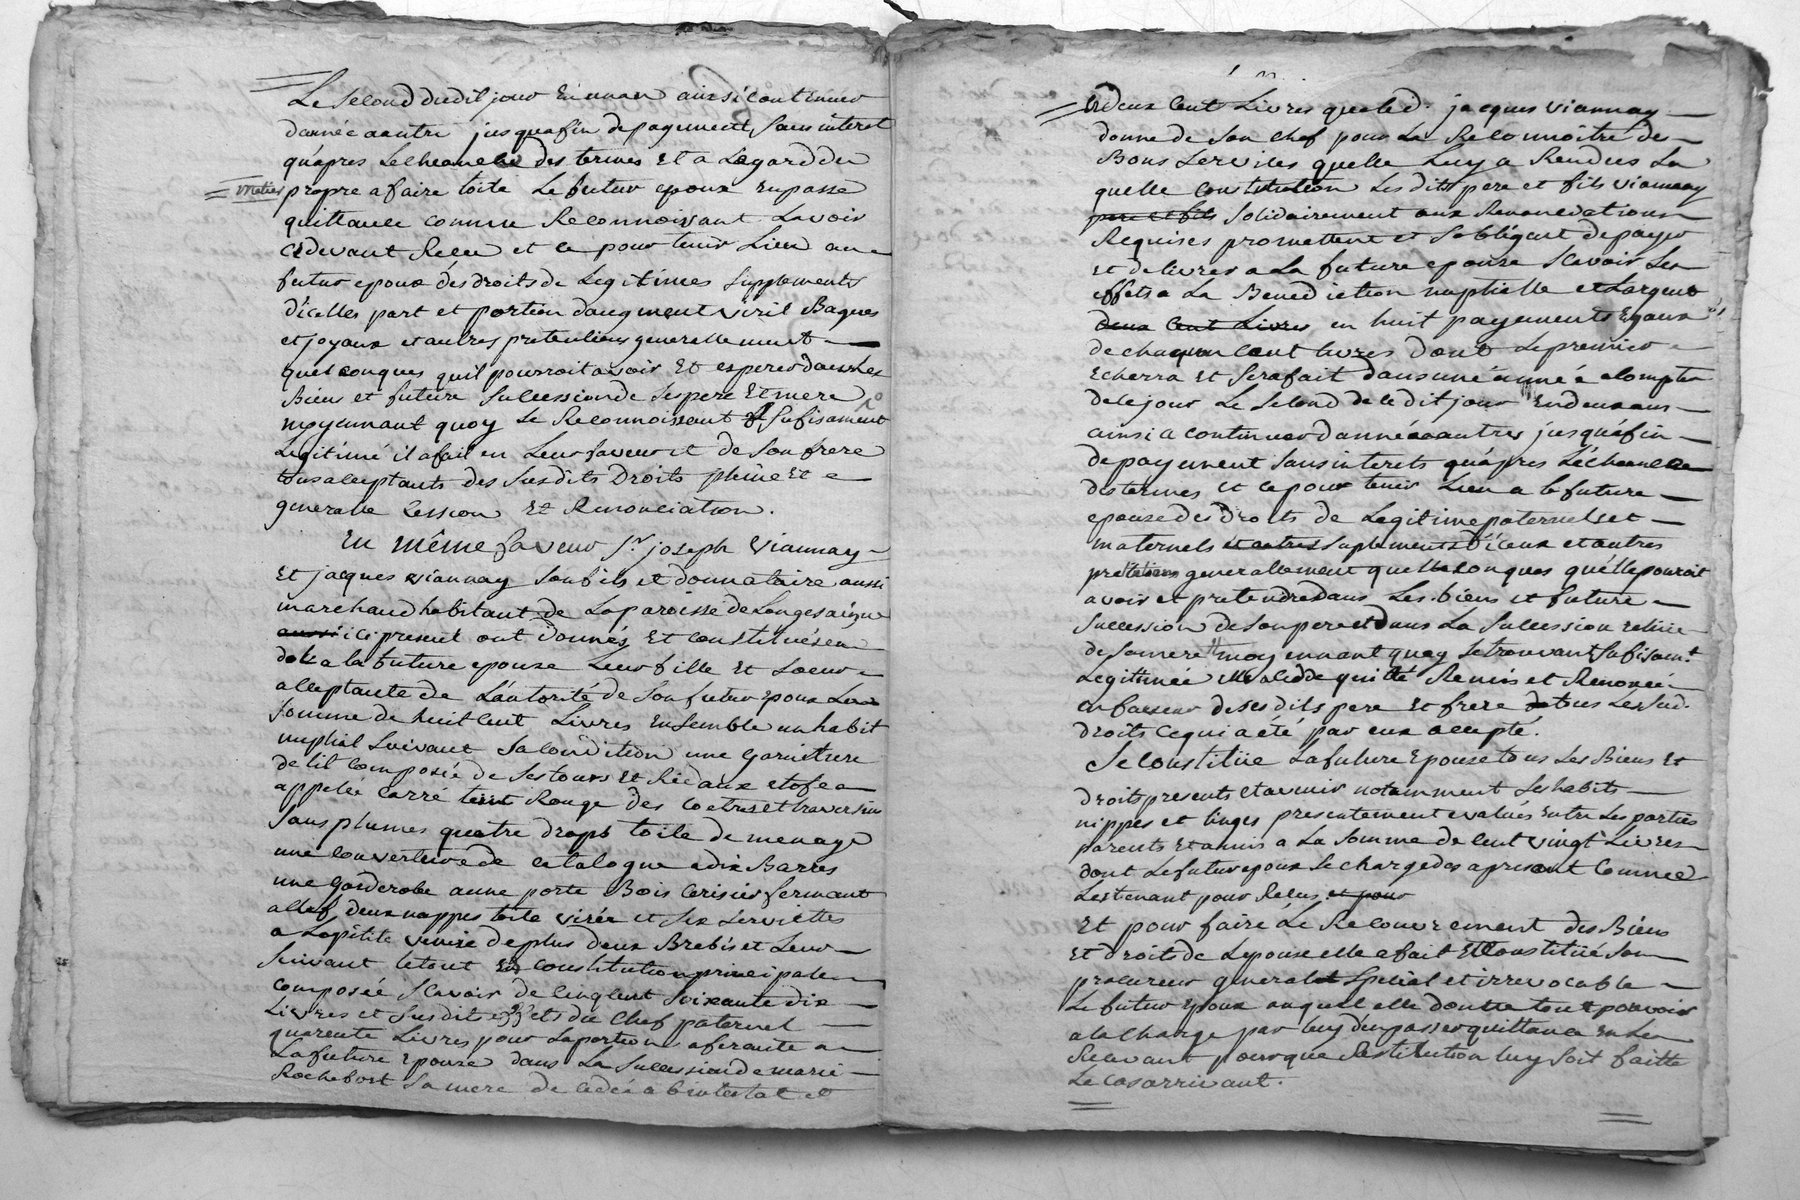 Le second dudit jour En un an ainsi continuer
dannée a autre jusqu'a fin de payement, Sans interet
qu'apres Lecheance des termes Et a Legard du
= metier propre a faire toile Le futur epoux en passe
quittance comme Reconnoissant Lavoir
cy devant Recu et ce pour tenir Lieu au
futur epoux des droits de Legitimes supplements
d'icelles part et portion daugment viril Bagues
et joyaux et autres pretentions generallement
quelconques quil pourroit avoir Et esperer dans les
Biens et future succession de ses pere Et mere
moyennant quoy se Reconnoissant sufisament
Legitimé il a fait en Leur faveur et de son frere
tous acceptants des susdits Droits pleine Et
generalle Cession Et Renonciation.
En même faveur Sr. joseph Viannay
Et jacques viannay son fils et donnataire aussi
marchand habitant de La paroisse de Longesaigne
aussi ici present ont donnés Et constitués en
dot a la future epouse Leur fille Et soeur
acceptante de L'autorité de son futur Epoux La
somme de huit cent Livres Ensemble un habit
nuptial suivant sa condition une garniture
de lit composée de ses tours Et Rideaux etofe
appellé carré teint Rouge des coetre et traversin
sans plumes quatre draps toile de menage
une couverture de catalogne a dix Barres
une garderobe a une porte Bois Cerisier fermant
a clef, deux nappes toile virée et six serviettes
a La petite venise de plus deux Brebis et Leur
suivant le tout En constitution principale
composée scavoir de cinq cent soixante dix
Livres et susdits effets du Chef paternel
quarente Livres pour la portion aferante a
La future Epouse dans La succession de marie
Rochefort sa mere de cedée abintestat et
= Et deux Cent Livres que led. jacques viannay
donne de son chef pour La Reconnoitre des
Bons services quelle Luy a Rendus La
quelle constitution Les dits pere et fils viannay
pere et fils solidairement aux Renonciations
Requises promettent et s'obligent de payer
et delivrer a La future epouse scavoir Les
effets a La Benediction nuptialle et Largent
deux Cent Livres en huit payements Egaux
de chaqun cent livres dont Le premier
Echerra Et sera fait dans une année a compter
de ce jour Le second de cedit jour En deux ans
ainsi a continuer dannée a autres jusqu'a fin
de payement sans interets qu'apres L'echeance
des termes et ce pour tenir Lieu a la future
epouse des droits de Legitime paternels et
maternels et autres suplements d'iceux et autres
pretentions generallement quelleconques qu'elle pouroit
avoir et pretendre dans Les biens et future
succession de son pere et dans La succession echue
de sa mere moyennant quoy se trouvant sufisamt.
Legitimée Elle a cedde quitté Remis et Renoncé
en faveur de ses dits pere et frere de tous Les sud.
droits ce qui a été par eux accepté.
Se Constitue La future Epouse tous Les Biens Et
droits presents et avenir notamment ses habits
nippes et linges presentement evalués entre Les parties
parents et amis a La somme de Cent vingt Livres
dont Le futur epoux se charge des apresent Comme
Les tenant pour Recus et pour
Et pour faire Le Recouvrement des Biens
et droits de Lepouse elle a fait et Constitué son
procureur general et special et irrevocable
Le futur Epoux auquel elle donne tout pouvoir
a la Charge par luy d'en passer quittance en Les
Recevant pour que Restitution luy soit faitte
Le cas arrivant.